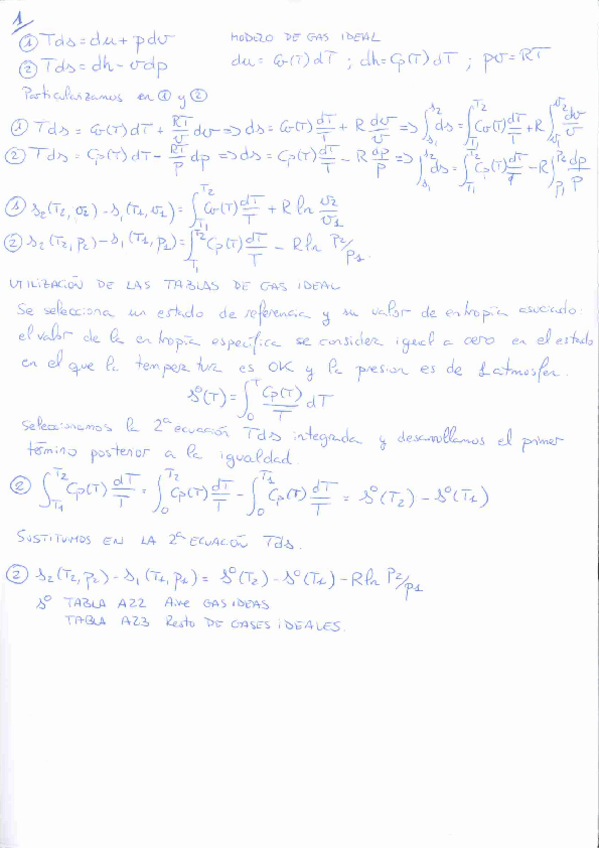 1
① Tds = du + pdv MODELO DE GAS IDEAL
② Tds = dh - vdp du = Cv(T)dT ; dh = Cp(T)dT ; pv = RT
Particularizamos en ① y ②
① Tds = Cv(T)dT + RT/v dv => ds = Cv(T) dT/T + R dv/v => ∫_{s1}^{s2} ds = ∫_{T1}^{T2} Cv(T) dT/T + R ∫_{v1}^{v2} dv/v
② Tds = Cp(T)dT - RT/p dp => ds = Cp(T) dT/T - R dp/p => ∫_{s1}^{s2} ds = ∫_{T1}^{T2} Cp(T) dT/T - R ∫_{p1}^{p2} dp/p
① s2(T2, v2) - s1(T1, v1) = ∫_{T1}^{T2} Cv(T) dT/T + R ln v2/v1
② s2(T2, p2) - s1(T1, p1) = ∫_{T1}^{T2} Cp(T) dT/T - R ln P2/p1.
UTILIZACIÓN DE LAS TABLAS DE GAS IDEAL
Se selecciona un estado de referencia y su valor de entropía asociado:
el valor de la entropía específica se considera igual a cero en el estado
en el que la tempertura es 0K y la presion es de 1 atmosfera.
s°(T) = ∫_0^T Cp(T)/T dT
Seleccionamos la 2ª ecuación Tds integrada y desarrollamos el primer
término posterior a la igualdad.
② ∫_{T1}^{T2} Cp(T) dT/T = ∫_0^{T2} Cp(T) dT/T - ∫_0^{T1} Cp(T) dT/T = s°(T2) - s°(T1)
SUSTITUIMOS EN LA 2ª ECUACIÓN Tds.
② s2(T2, p2) - s1(T1, p1) = s°(T2) - s°(T1) - R ln P2/p1
s° TABLA A22 Aire GAS IDEAS
TABLA A23 Resto DE GASES IDEALES.